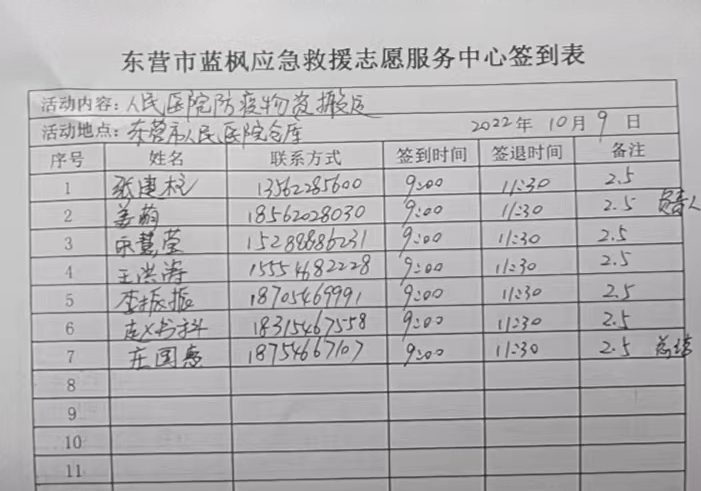 东营市蓝枫应急救援志愿服务中心签到表
活动内容：人民医院防疫物资搬运
活动地点：东营市人民医院仓库 2022年10月9日
序号 姓名 联系方式 签到时间 签退时间 备注
1 张建柱 13562285600 9:00 11:30 2.5
2 姜萌 18562028030 9:00 11:30 2.5 负责人
3 宋慧莹 15288886231 9:00 11:30 2.5
4 王洪涛 15554682228 9:00 11:30 2.5
5 李振振 18705469991 9:00 11:30 2.5
6 赵书科 18315467558 9:00 11:30 2.5
7 庄国惠 18754667107 9:00 11:30 2.5
8
9
10
11